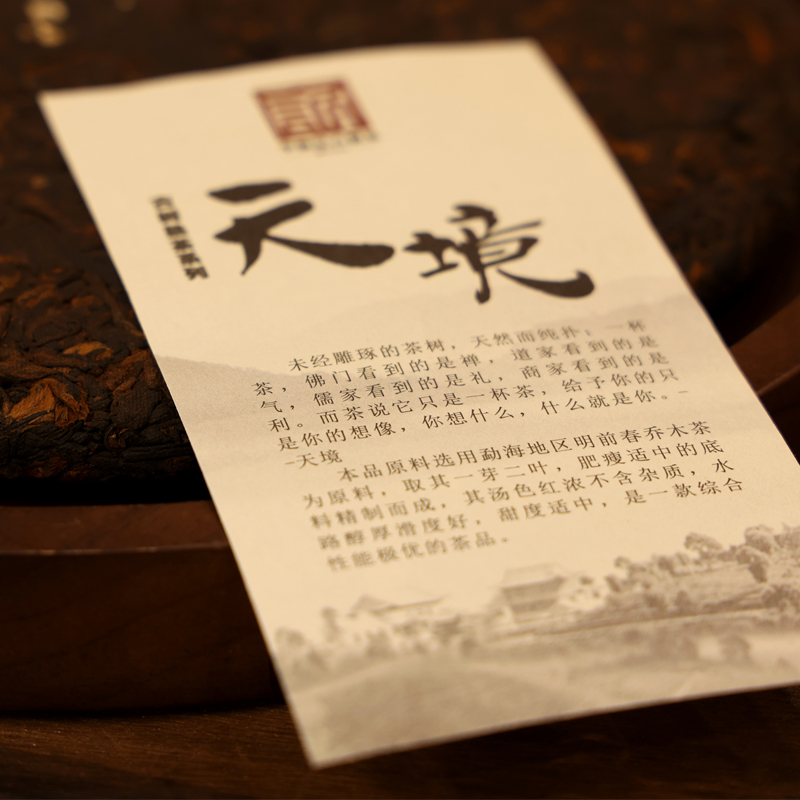 天境
未经雕琢的茶树，天然而纯朴；一杯
茶，佛门看到的是禅，道家看到的是
气，儒家看到的是礼，商家看到的是
利。而茶说它只是一杯茶，给予你的只
是你的想像，你想什么，什么就是你。-
-天境
本品原料选用勐海地区明前春乔木茶
为原料，取其一芽二叶，肥瘦适中的底
料精制而成，其汤色红浓不含杂质，水
路醇厚滑度好，甜度适中，是一款综合
性能极优的茶品。